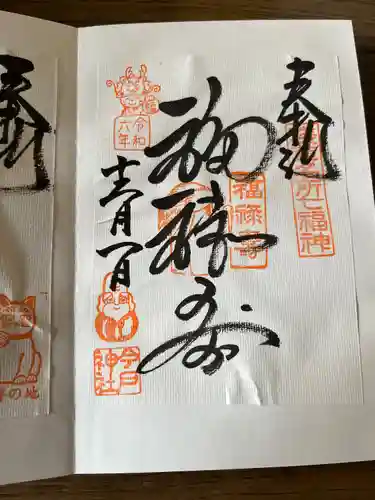 奉拝
浅草名所七福神
福禄寿
福禄寿
令和
六年
十二月一日
今戸
神社
の地